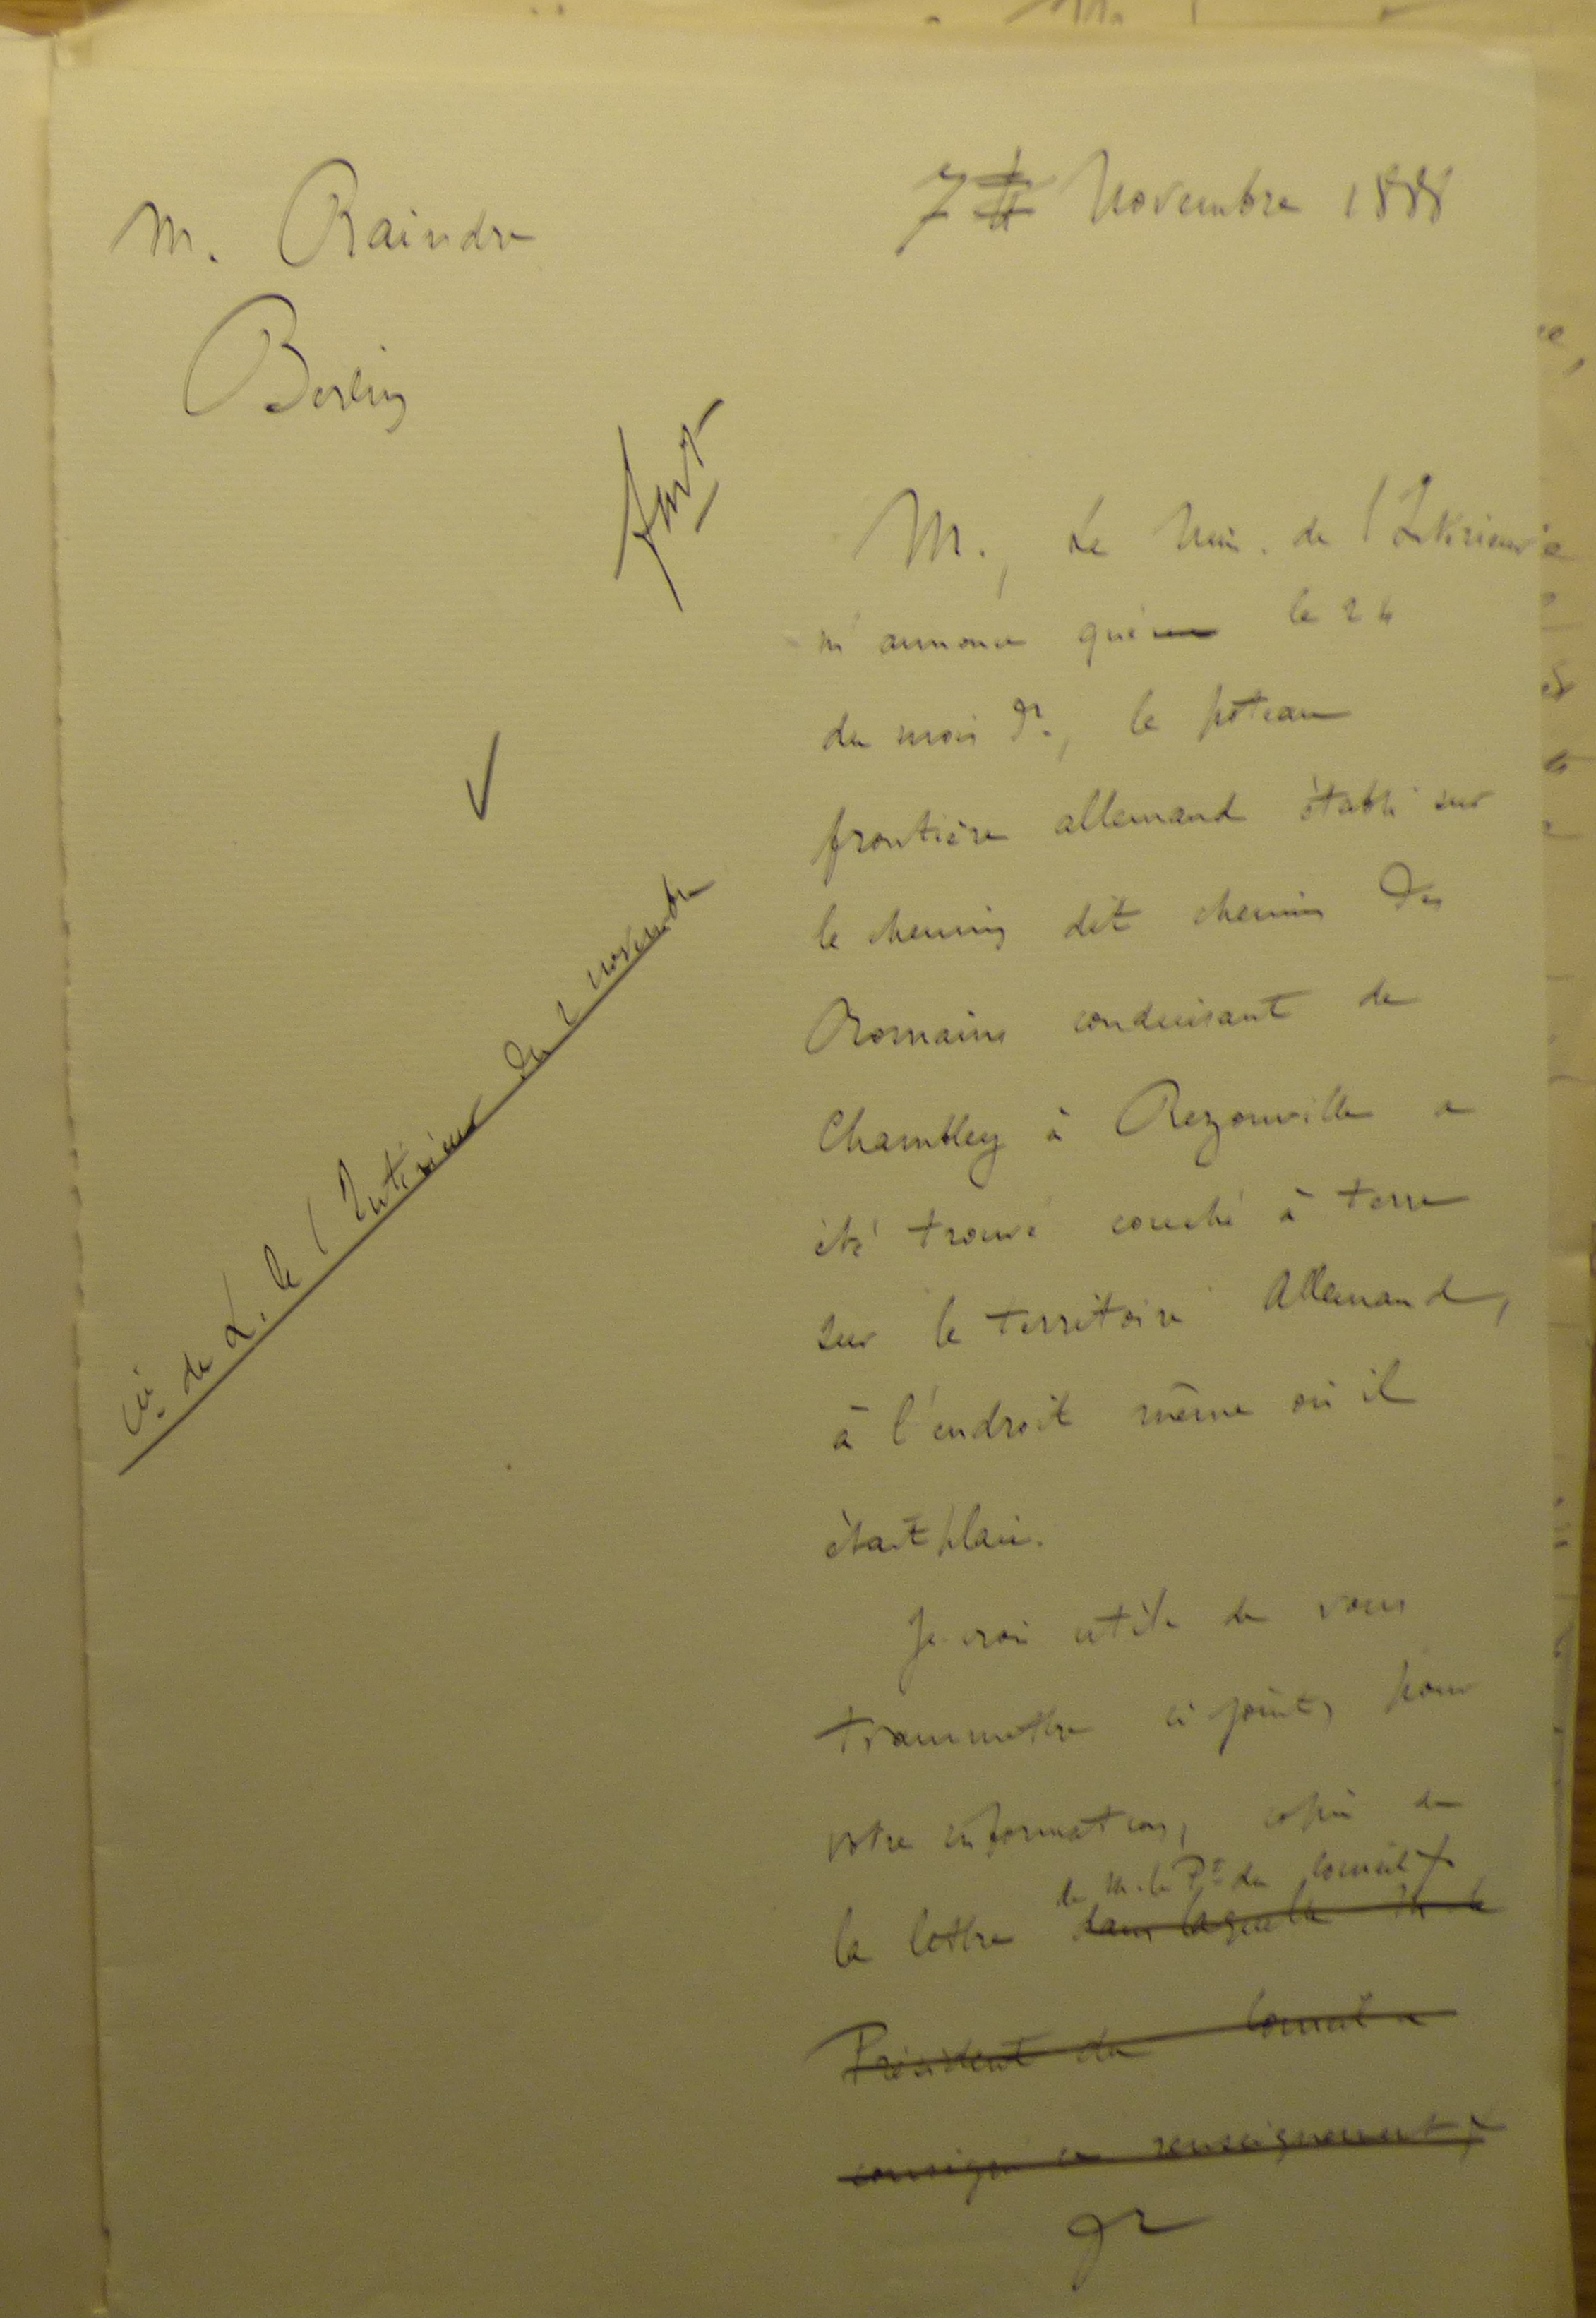 M. Raindre
Berlin
7 Novembre 1888
M., Le Min. de l'Intérieur
m'annonce que le 24
du mois dr., le poteau
frontière allemand établi sur
le chemin dit chemin des
Romains conduisant de
Chambley à Rezonville a
été trouvé couché à terre
sur le territoire allemand,
à l'endroit même où il
était placé.
Je crois utile de vous
transmettre ci joint, pour
votre information, copie de
de M. le Pt du Conseil
la lettre dans laquelle M. le
Président du Conseil a
consigné ce renseignement
Cie de L. de l'Intérieur du 2 novembre